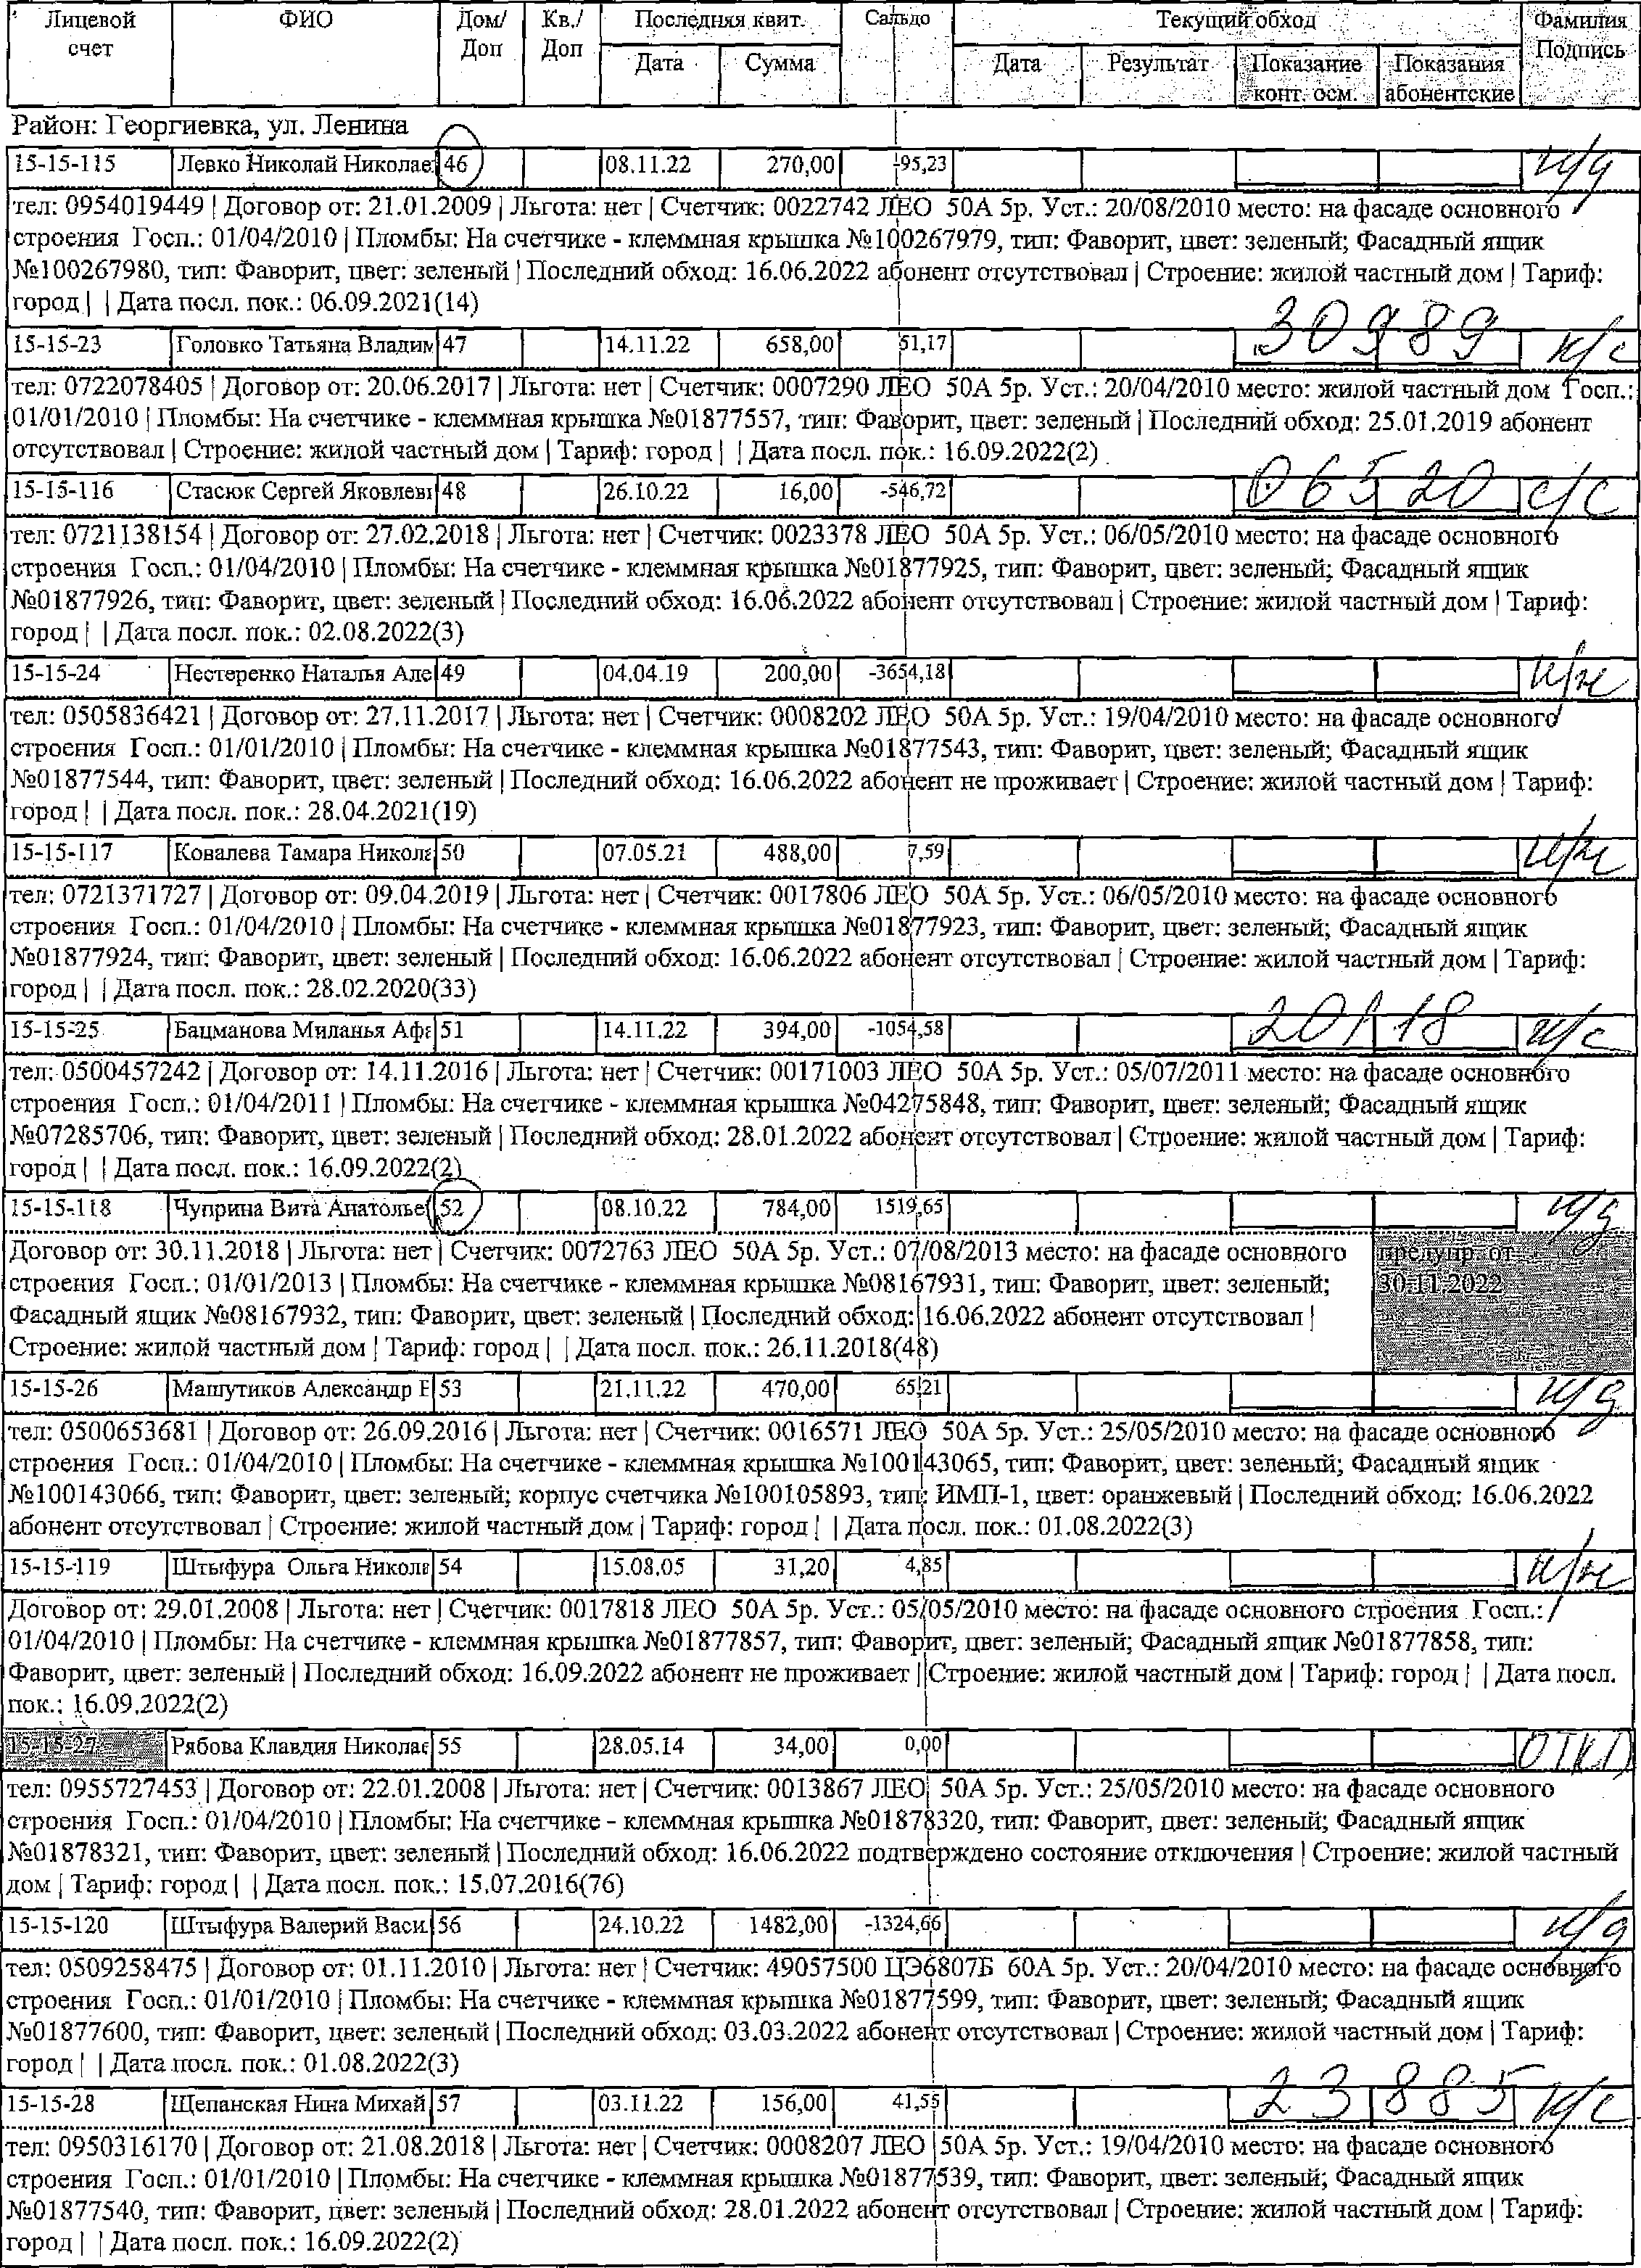 Лицевой счет ФИО Дом/Доп Кв./Доп Последняя квит. Сальдо Текущий обход Фамилия Подпись
Дата Сумма Дата Результат Показание конт. осм. Показания абонентские
Район: Георгиевка, ул. Ленина
15-15-115 Левко Николай Николае 46 08.11.22 270,00 -95,23 н/д
тел: 0954019449 | Договор от: 21.01.2009 | Льгота: нет | Счетчик: 0022742 ЛЕО 50А 5р. Уст.: 20/08/2010 место: на фасаде основного
строения Госп.: 01/04/2010 | Пломбы: На счетчике - клеммная крышка №100267979, тип: Фаворит, цвет: зеленый; Фасадный ящик
№100267980, тип: Фаворит, цвет: зеленый | Последний обход: 16.06.2022 абонент отсутствовал | Строение: жилой частный дом | Тариф:
город | | Дата посл. пок.: 06.09.2021(14)
15-15-23 Головко Татьяна Владим 47 14.11.22 658,00 51,17 30989 н/с
тел: 0722078405 | Договор от: 20.06.2017 | Льгота: нет | Счетчик: 0007290 ЛЕО 50А 5р. Уст.: 20/04/2010 место: жилой частный дом Госп.:
01/01/2010 | Пломбы: На счетчике - клеммная крышка №01877557, тип: Фаворит, цвет: зеленый | Последний обход: 25.01.2019 абонент
отсутствовал | Строение: жилой частный дом | Тариф: город | | Дата посл. пок.: 16.09.2022(2)
15-15-116 Стасюк Сергей Яковлеви 48 26.10.22 16,00 -546,72 06520 с/с
тел: 0721138154 | Договор от: 27.02.2018 | Льгота: нет | Счетчик: 0023378 ЛЕО 50А 5р. Уст.: 06/05/2010 место: на фасаде основного
строения Госп.: 01/04/2010 | Пломбы: На счетчике - клеммная крышка №01877925, тип: Фаворит, цвет: зеленый; Фасадный ящик
№01877926, тип: Фаворит, цвет: зеленый | Последний обход: 16.06.2022 абонент отсутствовал | Строение: жилой частный дом | Тариф:
город | | Дата посл. пок.: 02.08.2022(3)
15-15-24 Нестеренко Наталья Але 49 04.04.19 200,00 -3654,18 н/ж
тел: 0505836421 | Договор от: 27.11.2017 | Льгота: нет | Счетчик: 0008202 ЛЕО 50А 5р. Уст.: 19/04/2010 место: на фасаде основного
строения Госп.: 01/01/2010 | Пломбы: На счетчике - клеммная крышка №01877543, тип: Фаворит, цвет: зеленый; Фасадный ящик
№01877544, тип: Фаворит, цвет: зеленый | Последний обход: 16.06.2022 абонент не проживает | Строение: жилой частный дом | Тариф:
город | | Дата посл. пок.: 28.04.2021(19)
15-15-117 Ковалева Тамара Никола 50 07.05.21 488,00 7,59 н/ж
тел: 0721371727 | Договор от: 09.04.2019 | Льгота: нет | Счетчик: 0017806 ЛЕО 50А 5р. Уст.: 06/05/2010 место: на фасаде основного
строения Госп.: 01/04/2010 | Пломбы: На счетчике - клеммная крышка №01877923, тип: Фаворит, цвет: зеленый; Фасадный ящик
№01877924, тип: Фаворит, цвет: зеленый | Последний обход: 16.06.2022 абонент отсутствовал | Строение: жилой частный дом | Тариф:
город | | Дата посл. пок.: 28.02.2020(33)
15-15-25 Бацманова Миланья Афа 51 14.11.22 394,00 -1054,58 20118 н/с
тел: 0500457242 | Договор от: 14.11.2016 | Льгота: нет | Счетчик: 00171003 ЛЕО 50А 5р. Уст.: 05/07/2011 место: на фасаде основного
строения Госп.: 01/04/2011 | Пломбы: На счетчике - клеммная крышка №04275848, тип: Фаворит, цвет: зеленый; Фасадный ящик
№07285706, тип: Фаворит, цвет: зеленый | Последний обход: 28.01.2022 абонент отсутствовал | Строение: жилой частный дом | Тариф:
город | | Дата посл. пок.: 16.09.2022(2)
15-15-118 Чуприна Вита Анатолье 52 08.10.22 784,00 1519,65 н/д
Договор от: 30.11.2018 | Льгота: нет | Счетчик: 0072763 ЛЕО 50А 5р. Уст.: 07/08/2013 место: на фасаде основного предупр. от
строения Госп.: 01/01/2013 | Пломбы: На счетчике - клеммная крышка №08167931, тип: Фаворит, цвет: зеленый; 30.11.2022
Фасадный ящик №08167932, тип: Фаворит, цвет: зеленый | Последний обход: 16.06.2022 абонент отсутствовал |
Строение: жилой частный дом | Тариф: город | | Дата посл. пок.: 26.11.2018(48)
15-15-26 Машутиков Александр В 53 21.11.22 470,00 65,21 н/д
тел: 0500653681 | Договор от: 26.09.2016 | Льгота: нет | Счетчик: 0016571 ЛЕО 50А 5р. Уст.: 25/05/2010 место: на фасаде основного
строения Госп.: 01/04/2010 | Пломбы: На счетчике - клеммная крышка №100143065, тип: Фаворит, цвет: зеленый; Фасадный ящик
№100143066, тип: Фаворит, цвет: зеленый; корпус счетчика №100105893, тип: ИМП-1, цвет: оранжевый | Последний обход: 16.06.2022
абонент отсутствовал | Строение: жилой частный дом | Тариф: город | | Дата посл. пок.: 01.08.2022(3)
15-15-119 Штыфура Ольга Никола 54 15.08.05 31,20 4,85 н/ж
Договор от: 29.01.2008 | Льгота: нет | Счетчик: 0017818 ЛЕО 50А 5р. Уст.: 05/05/2010 место: на фасаде основного строения Госп.:
01/04/2010 | Пломбы: На счетчике - клеммная крышка №01877857, тип: Фаворит, цвет: зеленый; Фасадный ящик №01877858, тип:
Фаворит, цвет: зеленый | Последний обход: 16.09.2022 абонент не проживает | Строение: жилой частный дом | Тариф: город | | Дата посл.
пок.: 16.09.2022(2)
15-15-27 Рябова Клавдия Николае 55 28.05.14 34,00 0,00 ОТКЛ
тел: 0955727453 | Договор от: 22.01.2008 | Льгота: нет | Счетчик: 0013867 ЛЕО 50А 5р. Уст.: 25/05/2010 место: на фасаде основного
строения Госп.: 01/04/2010 | Пломбы: На счетчике - клеммная крышка №01878320, тип: Фаворит, цвет: зеленый; Фасадный ящик
№01878321, тип: Фаворит, цвет: зеленый | Последний обход: 16.06.2022 подтверждено состояние отключения | Строение: жилой частный
дом | Тариф: город | | Дата посл. пок.: 15.07.2016(76)
15-15-120 Штыфура Валерий Васи 56 24.10.22 1482,00 -1324,66 н/д
тел: 0509258475 | Договор от: 01.11.2010 | Льгота: нет | Счетчик: 49057500 ЦЭ6807Б 60А 5р. Уст.: 20/04/2010 место: на фасаде основного
строения Госп.: 01/01/2010 | Пломбы: На счетчике - клеммная крышка №01877599, тип: Фаворит, цвет: зеленый; Фасадный ящик
№01877600, тип: Фаворит, цвет: зеленый | Последний обход: 03.03.2022 абонент отсутствовал | Строение: жилой частный дом | Тариф:
город | | Дата посл. пок.: 01.08.2022(3)
15-15-28 Щепанская Нина Михай 57 03.11.22 156,00 41,55 23885 н/с
тел: 0950316170 | Договор от: 21.08.2018 | Льгота: нет | Счетчик: 0008207 ЛЕО 50А 5р. Уст.: 19/04/2010 место: на фасаде основного
строения Госп.: 01/01/2010 | Пломбы: На счетчике - клеммная крышка №01877539, тип: Фаворит, цвет: зеленый; Фасадный ящик
№01877540, тип: Фаворит, цвет: зеленый | Последний обход: 28.01.2022 абонент отсутствовал | Строение: жилой частный дом | Тариф:
город | | Дата посл. пок.: 16.09.2022(2)